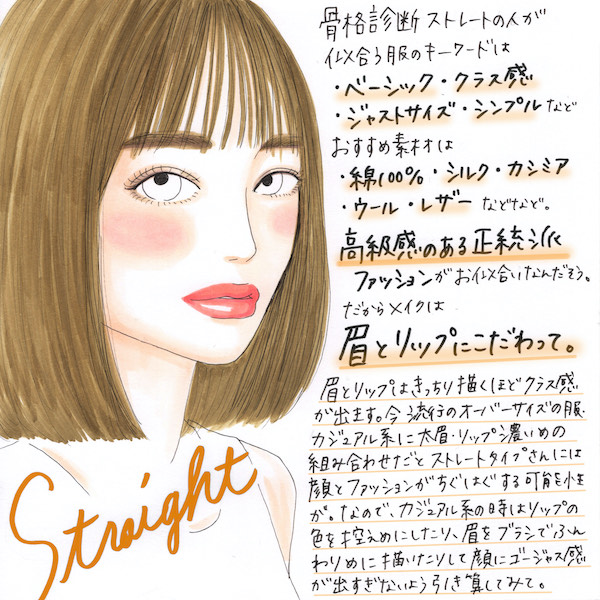 骨格診断ストレートの人が
似合う服のキーワードは
・ベーシック・クラス感
・ジャストサイズ・シンプルなど
おすすめ素材は
・綿100%・シルク・カシミア
・ウール・レザー などなど。
高級感のある正統派
ファッションがお似合いなんだそう。
だからメイクは
眉とリップにこだわって。
眉とリップはきっちり描くほどクラス感
が出ます。今流行のオーバーサイズの服、
カジュアル系に太眉・リップ濃いめの
組み合わせだとストレートタイプさんには
顔とファッションがちぐはぐする可能性
が。なので、カジュアル系の時はリップの
色を控えめにしたり、眉をブラシでふん
わりめに描いたりして顔にゴージャス感
が出すぎないよう引き算してみて。
Straight